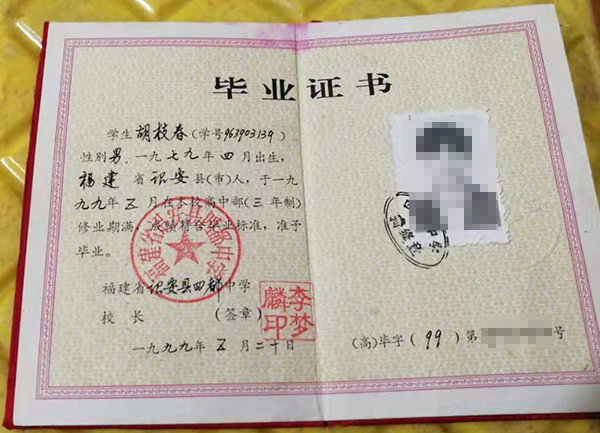 毕业证书
学生 胡枝春 (学号963903139)
性别男,一九七九年四月出生,
福建省诏安县(市)人,于一九
九九年五月在本校高中部(三年制)
修业期满,成绩符合毕业标准,准予
毕业。
福建省诏安县四都中学
校 长 (签章)
李梦麟印
一九九九年五月二十日
(高)毕字(99)第 号